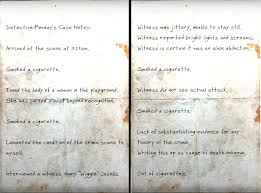 Detective Monday's Case Notes:
Arrived at the scene at 3:17am.
Smoked a cigarette.
Found the body of a woman in the playground.
She was burned almost beyond recognition.
Smoked a cigarette.
Lamented the condition of the crime scene to
myself.
Interviewed a witness Sharp "Wiggle" Jacobs.
Witness was jittery, unable to stay still.
Witness reported bright lights and screams.
Witness is certain it was an alien abduction.
Smoked a cigarette.
Witness did not see actual attack.
Smoked a cigarette.
Lack of substantiating evidence for any
theory of the crime.
Writing this up as cause of death unknown.
Out of cigarettes.